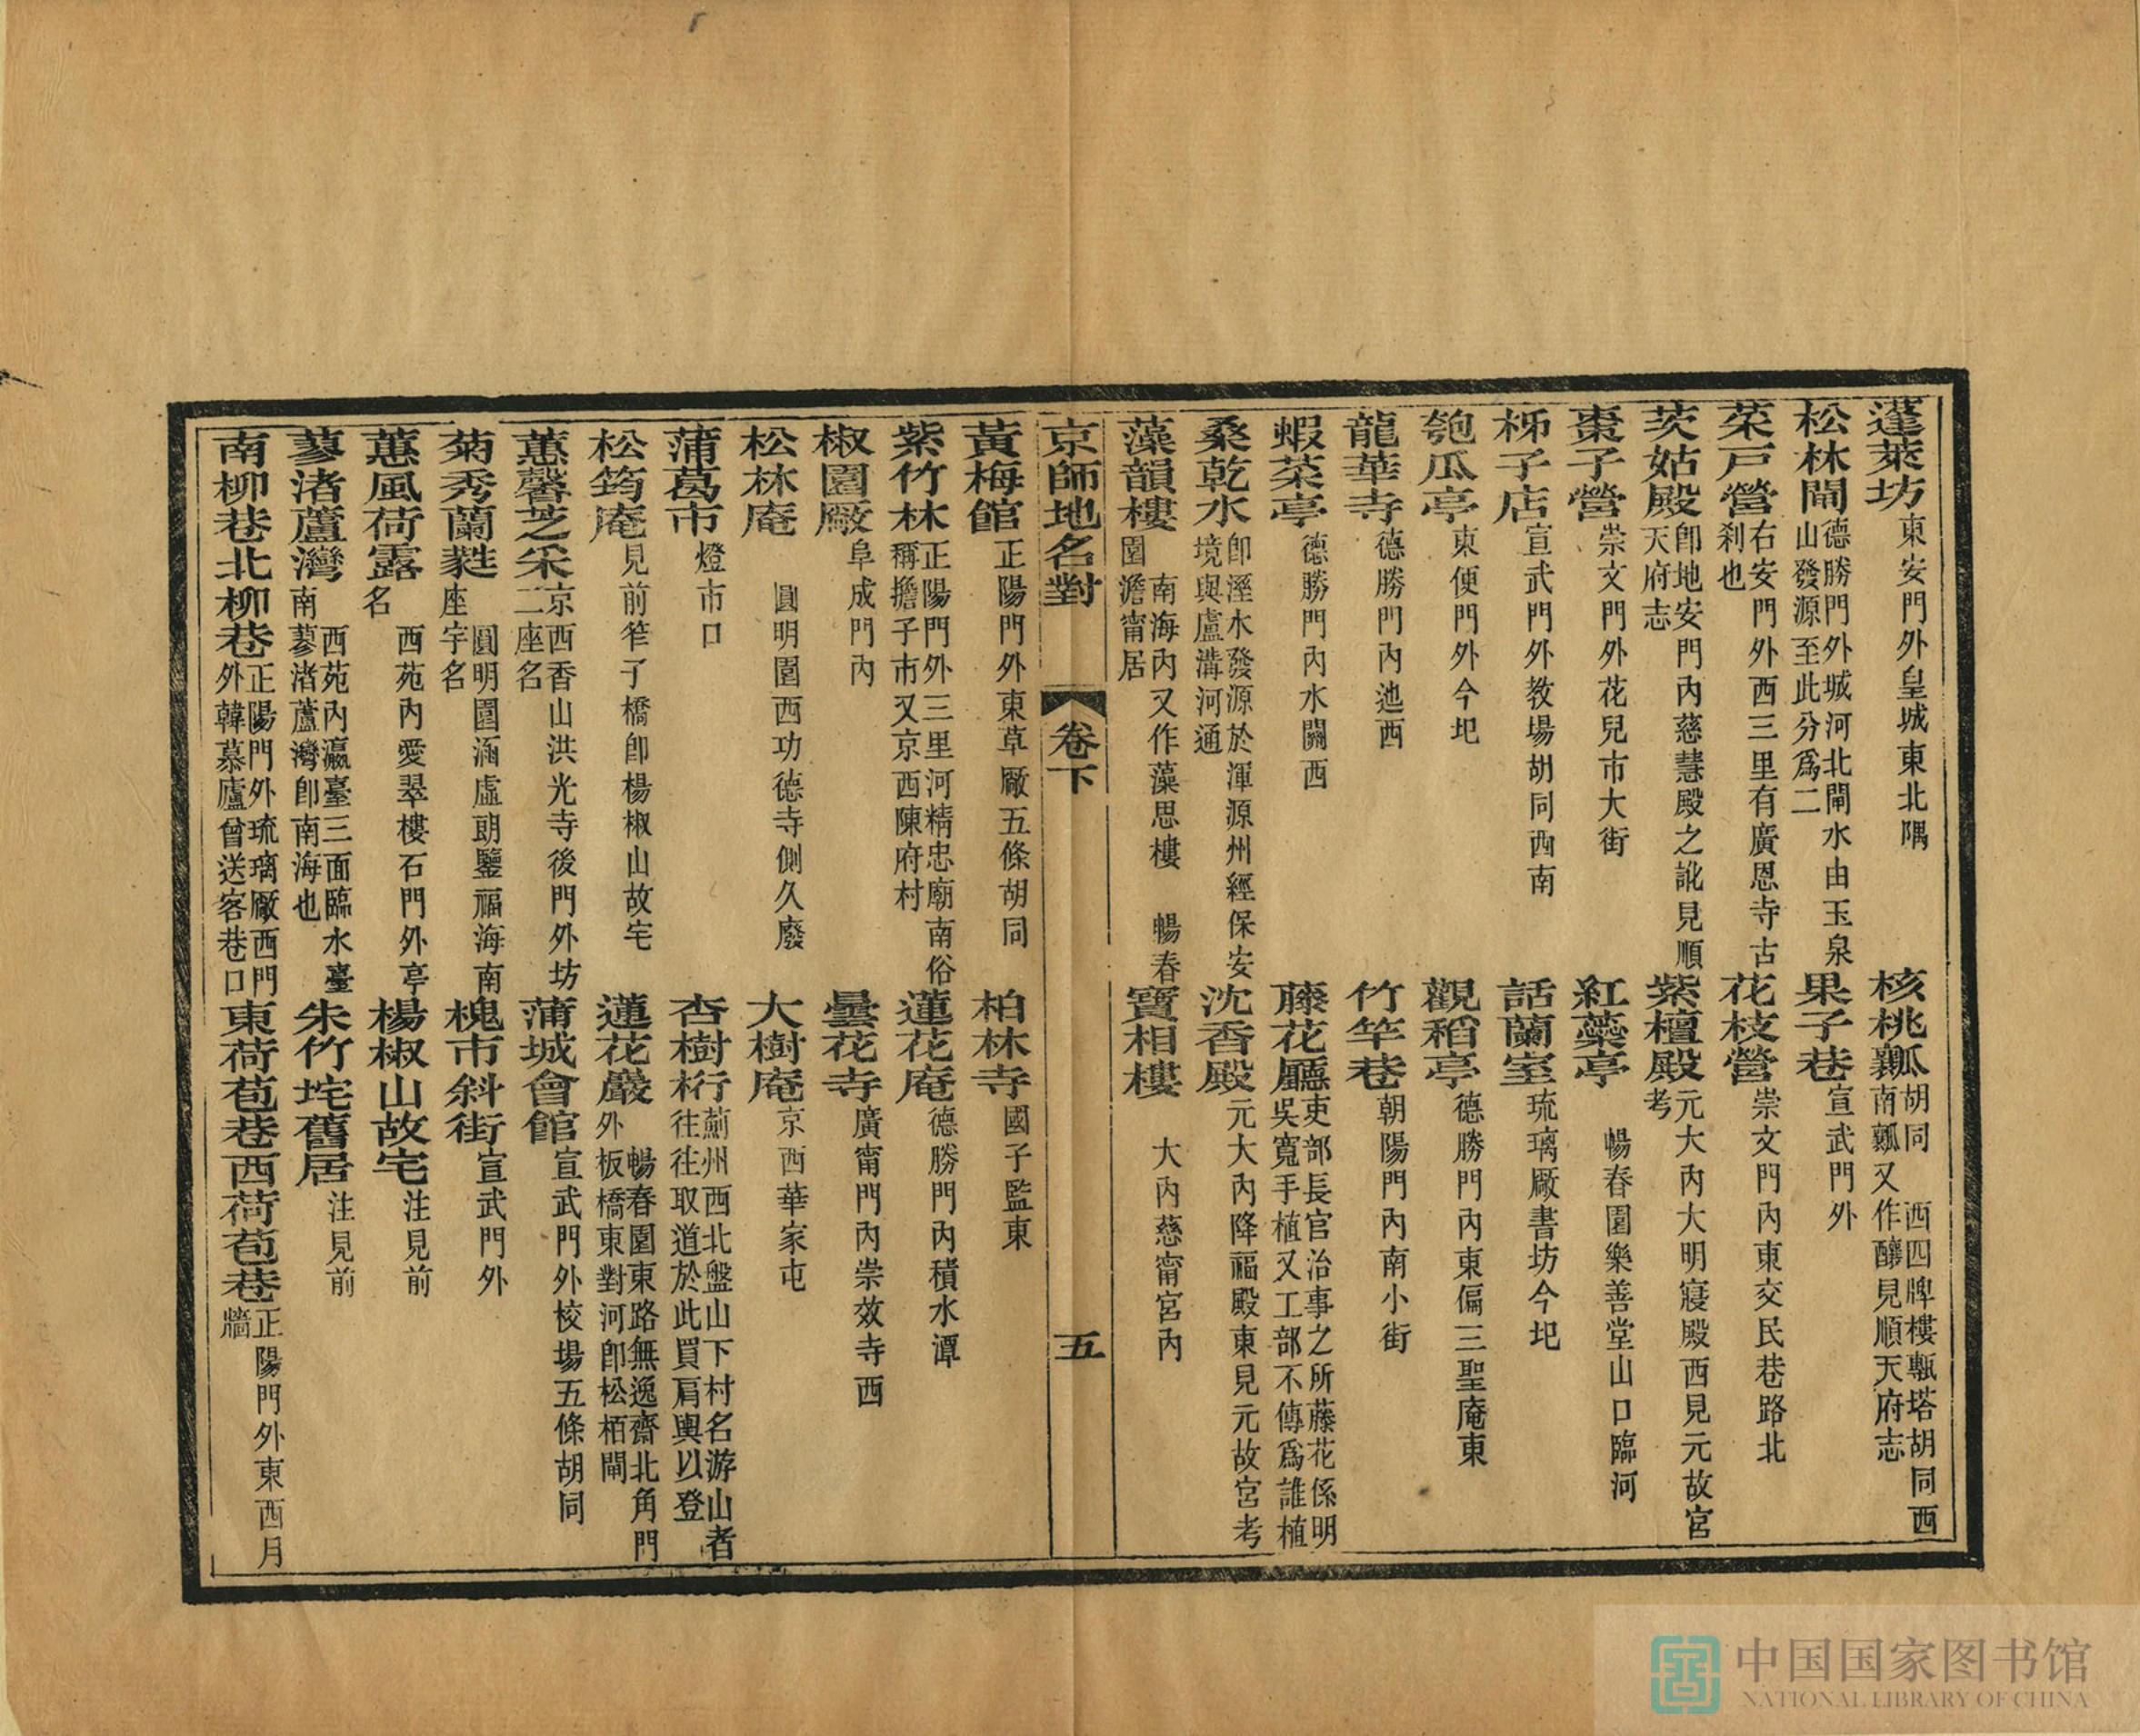 蓬萊坊東安門外皇城東北隅　核桃瓤胡同　西四牌樓甎塔胡同西南瓤又作釀見順天府志
松林閘德勝門外城河北閘水由玉泉山發源至此分爲二　果子巷宣武門外
菜戸營右安門外西三里有廣恩寺古刹也　花枝營崇文門內東交民巷路北
茨姑殿卽地安門內慈慧殿之訛見順天府志　紫檀殿元大內大明寢殿西見元故宮考
棗子營崇文門外花兒市大街　紅藥亭暢春園樂善堂山口臨河
柹子店宣武門外教場胡同西南　話蘭室琉璃厰書坊今圯
匏瓜亭東便門外今圯　觀稻亭德勝門內東偏三聖庵東
龍華寺德勝門內池西　竹竿巷朝陽門內南小街
蝦菜亭德勝門內水關西　藤花廳吏部長官治事之所藤花係明吳寬手植又工部不傳爲誰植
桑乾水卽溼水發源於渾源州經保安境與盧溝河通　沈香殿元大內降福殿東見元故宮考
藻韻樓南海內又作藻思樓　暢春園澹甯居　寶相樓大內慈甯宮內
京師地名對　卷下　五
黃梅館正陽門外東草厰五條胡同　柏林寺國子監東
紫竹林正陽門外三里河精忠廟南俗稱擔子市又京西陳府村　蓮花庵德勝門內積水潭
椒園厰阜成門內　曇花寺廣甯門內崇效寺西
松林庵圓明園西功德寺側久廢　大樹庵京西華家屯
蒲葛市燈市口　杏樹桁薊州西北盤山下村名游山者往往取道於此買肩輿以登
松筠庵見前笮子橋卽楊椒山故宅　蓮花巖暢春園東路無逸齋北角門外板橋東對河卽松栢閘
蕙馨芝采京西香山洪光寺後門外坊二座名　蒲城會館宣武門外校場五條胡同
菊秀蘭蕤圓明園涵虛朗鑒福海南座宇名　槐市斜街宣武門外
蕙風荷露西苑內愛翠樓石門外亭名　楊椒山故宅注見前
蓼渚蘆灣西苑內瀛臺三面臨水臺南蓼渚蘆灣卽南海也　朱竹垞舊居注見前
南柳巷北柳巷正陽門外琉璃厰西門外韓慕廬曾送客巷口　東荷苞巷西荷苞巷正陽門外東西月牆
中国国家图书馆
NATIONAL LIBRARY OF CHINA